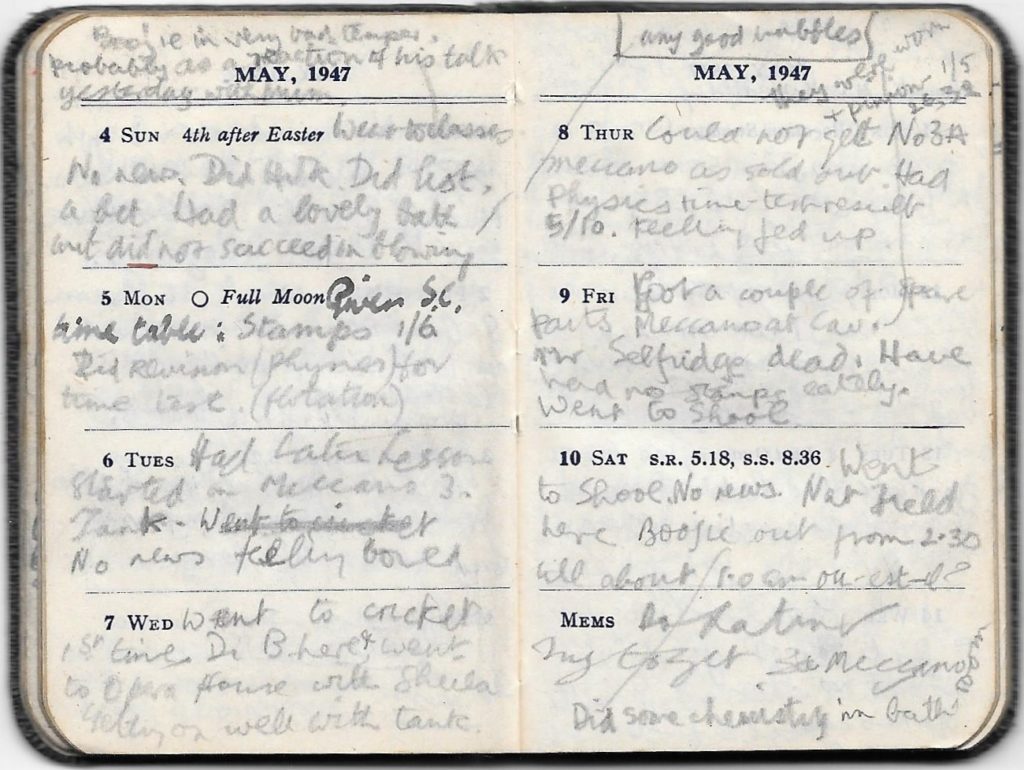 Boojie in very bad temper.
Probably as a reaction of his talk
MAY, 1947
yesterday with mum.
4 SUN 4th after Easter Went to classes
No news. Did Hwk. Did list.
a bit Had a lovely bath
but did not succeed in blowing
5 MON Full Moon Given S.C.
time table: Stamps 1/6
Did revision (Physics) for
time test. (flotation)
6 TUES Had Latin Lesson
Started on Meccano 3.
Tank - Went to cricket
No news feeling bored
7 WED Went to cricket
1st time. Di B. here & went
to Opera House with Sheila
Getting on well with tank.
any good wobbles
MAY, 1947
worm
1/5
they
pinion
8 THUR Could not get No 3A
meccano as sold out. Had
Physics time-test result
5/10. Feeling fed up.
9 FRI Got a couple of spare
parts Meccano at Cav.
Mr Selfridge dead. Have
had no stamps lately.
Went to Shool
10 SAT S.R. 5.18, S.S. 8.36. Went
to Shool. No news. Nat field
here Boojie out from 2.30
till about 1.0 am ou-est-il?
MEMS
Try to get 3a Meccano
Did some chemistry in bath